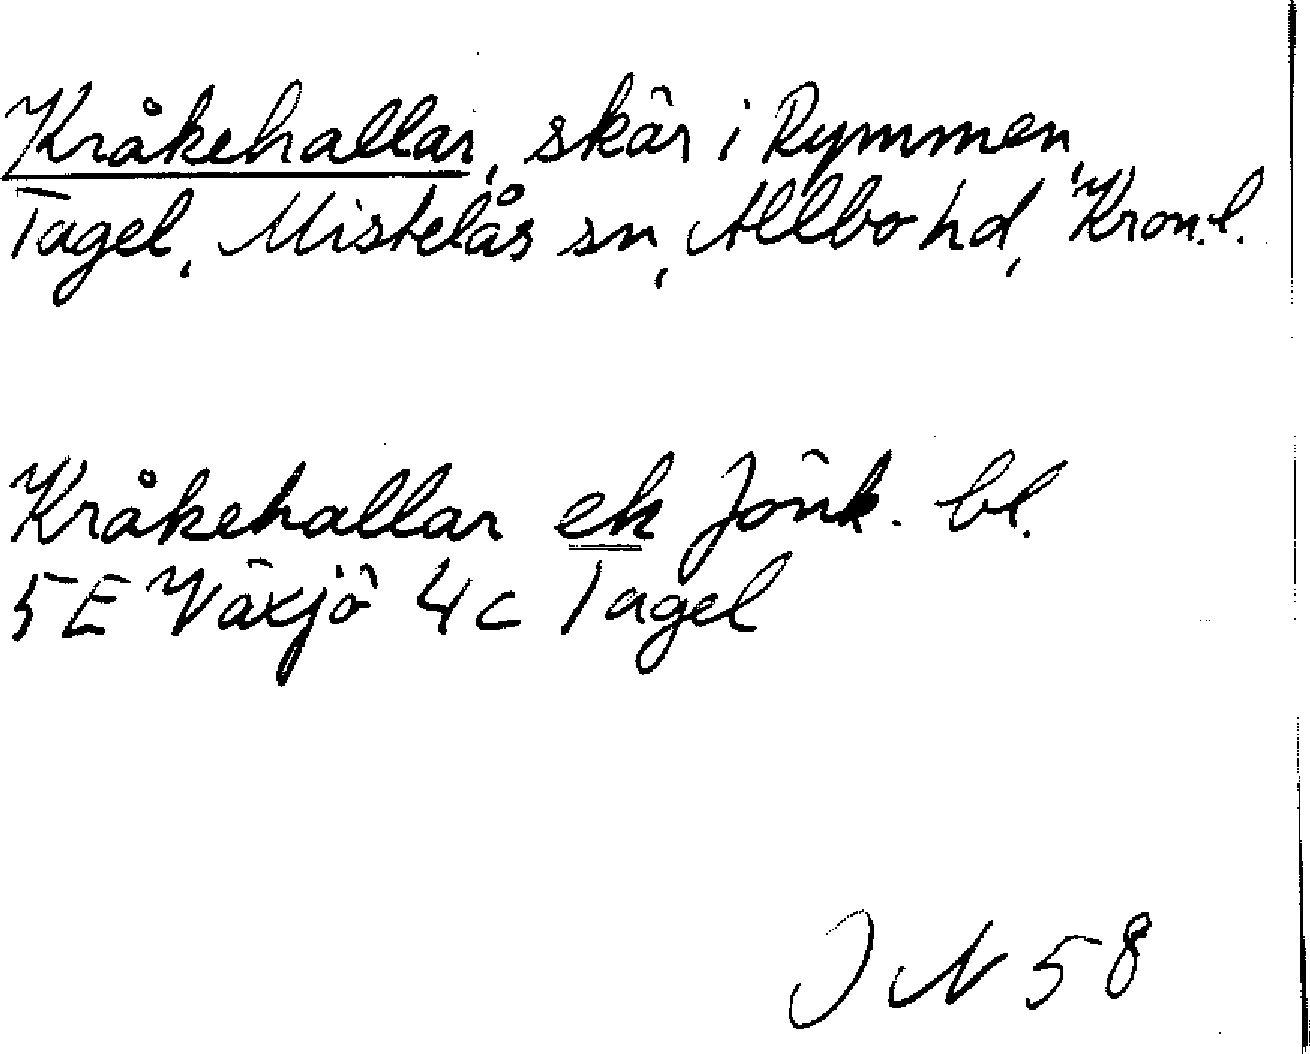 Kråkehallar, skär i Rymmen,
Tagel, Mistelås sn, Allbo hd, Kron.l.
Kråkehallar ek Jönk. bl.
5E Växjö 4c Tagel
J N 58